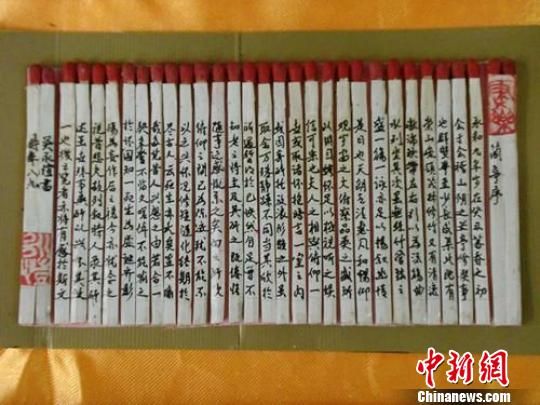 蘭亭序
永和九年歲在癸丑暮春之初
會于會稽山陰之蘭亭修禊事
也群賢畢至少長咸集此地有
崇山峻領茂林修竹又有清流
激湍映帶左右引以為流觴曲
水列坐其次雖無絲竹管弦之
盛一觴一詠亦足以暢敘幽情
是日也天朗氣清惠風和暢仰
觀宇宙之大俯察品類之盛所
以遊目騁懷足以極視聽之娛
信可樂也夫人之相與俯仰一
世或取諸懷抱悟言一室之內
或因寄所託放浪形骸之外雖
取舍萬殊靜躁不同當其欣於
所遇暫得於己快然自足不
知老之將至及其所之既惓情
隨事遷感慨係之矣向之所欣
俯仰之間已為陳迹猶不能不
以之興懷況修短隨化終期於
盡古人云死生亦大矣豈不痛
哉每覽昔人興感之由若合一
契未嘗不臨文嗟悼不能喻之
於懷固知一死生為虛誕齊彭
殤為妄作後之視今亦由今之
視昔悲夫故列敘時人錄其所
述雖世殊事異所以興懷其致
一也後之覽者亦將有感於斯文
書
時年八
中新网
Chinanews.com